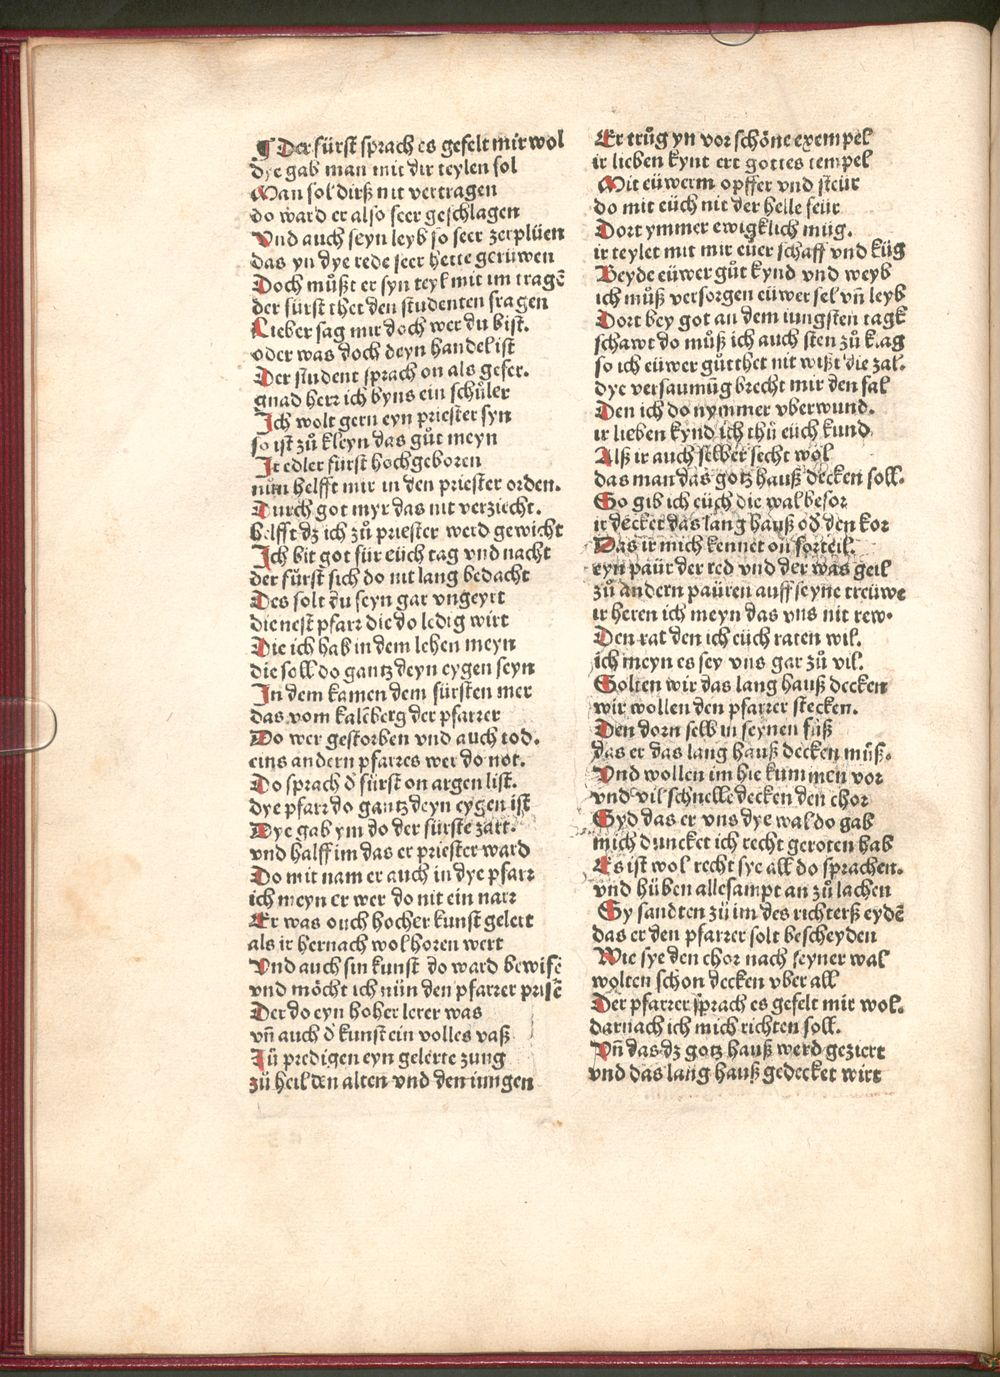 ¶ Der fürst sprach es gefelt mir wol
dye gab man mit dir teylen sol
Man sol dirß nit vertragen
do ward er also seer geschlagen
Vnd auch seyn leyb so seer zerplüen
das yn dye rede seer hette gerüwen
Doch můßt er syn teyl mit im tragē
der fürst thet den studenten fragen
Lieber sag mir doch wer du bist.
oder was doch deyn handel ist
Der student sprach on als gefer.
gnad herr ich byns ein schüler
Ich wolt gern eyn priester syn
so ist zů kleyn das gůt meyn
Ir edler fürst hochgeboren
nůn helfft mir in den priester orden.
Durch got myr das nit verziecht.
helfft dz ich zů priester werd gewicht
Ich bit got für eüch tag vnd nacht
der fürst sich do nit lang bedacht
Des solt du seyn gar vngeyrt
die nest pfarr die do ledig wirt
Die ich hab in dem lehen meyn
die soll do gantz deyn eygen seyn
In dem kamen dem fürsten mer
das vom kalēberg der pfarrer
Do wer gestorben vnd auch tod.
eins andern pfarres wer do not.
Do sprach d̄ fürst on argen list.
dye pfarr do gantz deyn eygen ist
Dye gab ym do der fürste zart.
vnd halff im das er priester ward
Do mit nam er auch in dye pfarr
ich meyn er wer do nit ein narr
Er was ouch hocher kunst gelert
als ir hernach wol horen wert
Vnd auch sin kunst do ward bewisē
vnd möcht ich nün den pfarrer prisē
Der do eyn hoher lerer was
vñ auch d̄ kunst ein volles vaß
Zů predigen eyn gelerte zung
zů heil den alten vnd den iungen
Er trůg yn vor schöne exempel
ir lieben kynt ert gottes tempel
Mit eüwerm opffer vnd steür
do mit eüch nit der helle feür
Dort ymmer ewigklich müg.
ir teylet mit mir eüer schaff vnd küg
Beyde eüwer gůt kynd vnd weyb
ich můß versorgen eüwer sel vñ leyb
Dort bey got an dem iungsten tagk
schawt do můß ich auch sten zů klag
so ich eüwer gůtthet nit wißt die zal.
dye versaumüg brecht mir den fal
Den ich do nymmer vberwund.
ir lieben kynd ich thů eüch kund
Alß ir auch selber secht wol
das man das gotz hauß decken soll.
So gib ich eüch die wal befor
ir decket das lang hauß od̄ den kor
Das ir mich kennet on forteil.
eyn paür der red vnd der was geil
zů andern paüren auff seyne treüwe
ir heren ich meyn das vns nit rew.
Den rat den ich eüch raten wil.
ich meyn es sey vns gar zů vil.
Solten wir das lang hauß decken
wir wollen den pfarrer stecken.
Den dorn selb in seynen fůß
das er das lang hauß decken můß.
Vnd wollen im hie kummen vor
vnd vil schnelle decken den chor
Syd das er vns dye wal do gab
mich duncket ich recht geroten hab
Es ist wol recht sye all do sprachen.
vnd hüben allesampt an zů lachen
Sy sandten zů im des richterß eydē
das er den pfarrer solt bescheyden
Wie sye den chor nach seyner wal
wolten schon decken vber all
Der pfarrer sprach es gefelt mir wol.
darnach ich mich richten soll.
Vñ das dz gotz hauß werd geziert
vnd das lang hauß gedecket wirt